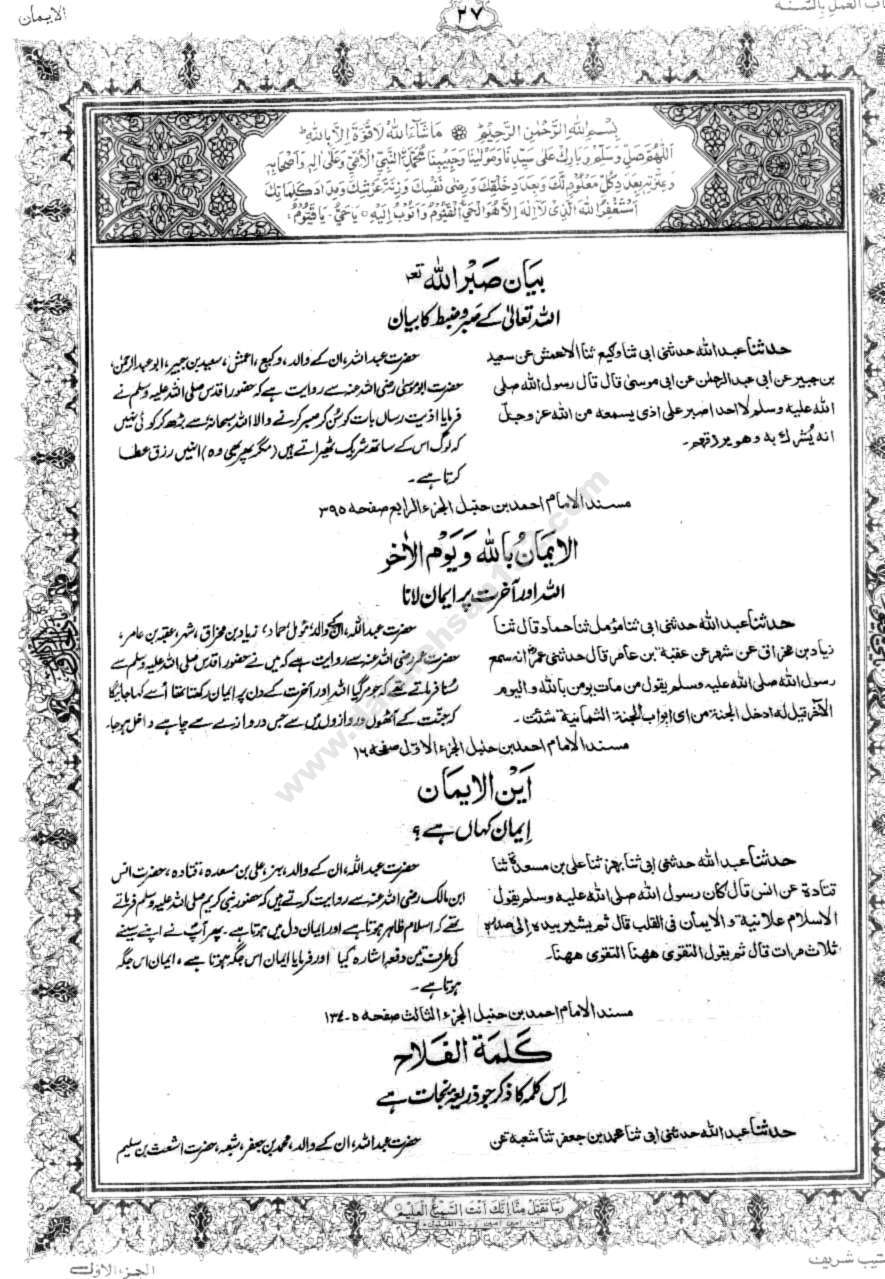 کتاب العمل بالسنة
٢٧
الایمان
بِسْمِ اللهِ الرَّحْمٰنِ الرَّحِيْمِ مَا شَآءَ اللهُ لَا قُوَّةَ اِلَّا بِاللهِ
اَللّٰهُمَّ صَلِّ وَسَلِّمْ وَبَارِكْ عَلٰى سَيِّدِنَا وَمَوْلٰنَا وَحَبِيْبِنَا مُحَمَّدِ النَّبِيِّ الْاُمِّيِّ وَعَلٰى اٰلِهٖ وَاَصْحَابِهٖ
وَعِتْرَتِهٖ بِعَدَدِ كُلِّ مَعْلُوْمٍ لَّكَ وَبِعَدَدِ خَلْقِكَ وَرِضٰى نَفْسِكَ وَزِنَةَ عَرْشِكَ وَمِدَادَ كَلِمَاتِكَ
اَسْتَغْفِرُ اللهَ الَّذِيْ لَا اِلٰهَ اِلَّا هُوَ الْحَيُّ الْقَيُّوْمُ وَاَتُوْبُ اِلَيْهِ يَا حَيُّ يَا قَيُّوْمُ
بیان صبر الله تعالیٰ
اللہ تعالیٰ کے صبر و ضبط کا بیان
حدثنا عبد الله حدثنی ابی ثنا وکیع ثنا الاعمش عن سعید
بن جبیر عن ابی عبد الرحمٰن عن ابی موسیٰ قال قال رسول الله صلی
الله علیه وسلم لا احد اصبر علی اذی یسمعه من الله عز وجل
انه یُشرك به وهو یرزقهم۔
حضرت عبد اللہ، ان کے والد، وکیع، اعمش، سعید بن جبیر، ابو عبد الرحمٰن،
حضرت ابو موسیٰ رضی اللہ عنہ سے روایت ہے کہ حضور اقدس صلی اللہ علیہ وسلم نے
فرمایا اذیت رساں بات کو سُن کر صبر کرنے والا اللہ سبحانہٗ سے بڑھ کر کوئی نہیں
کہ لوگ اس کے ساتھ شریک ٹھیراتے ہیں (مگر پھر بھی وہ) انہیں رزق عطا
کرتا ہے۔
مسند الامام احمد بن حنبل الجزء الرابع صفحه ٣٩٥
الایمانُ بالله و یوم الاٰخر
اللہ اور آخرت پر ایمان لانا
حدثنا عبد الله حدثنی ابی ثنا مؤمل ثنا حماد قال ثنا
زیاد بن مخراق عن شهر عن عقبة بن عامر قال حدثنی عمرؓ انه سمع
رسول الله صلی الله علیه وسلم یقول من مات یومن بالله والیوم
الآخر قیل له ادخل الجنة من ای ابواب الجنة الثمانیة شئت۔
حضرت عبد اللہ، ان کے والد، مؤمل، حماد، زیاد بن مخراق، شہر، عقبہ بن عامر،
حضرت عمر رضی اللہ عنہ سے روایت ہے کہ میں نے حضور اقدس صلی اللہ علیہ وسلم سے
سُنا فرماتے تھے کہ جو مر گیا اللہ اور آخرت کے دن پر ایمان رکھتا تھا اُسے کہا جائیگا
کہ جنت کے آٹھوں دروازوں میں سے جس دروازے سے چاہے داخل ہو جا۔
مسند الامام احمد بن حنبل الجزء الاوّل صفحه ١٦
این الایمان
اِیمان کہاں ہے؟
حدثنا عبد الله حدثنی ابی ثنا بهز ثنا علی بن مسعدة ثنا
قتادة عن انس قال کان رسول الله صلی الله علیه وسلم یقول
الاسلام علانیة والایمان فی القلب قال ثم یشیر بیده إلی صدره
ثلاث مرات قال ثم یقول التقوی ههنا التقوی ههنا۔
حضرت عبد اللہ، ان کے والد، بہز، علی بن مسعدہ، قتادہ، حضرت انس
ابن مالک رضی اللہ عنہ سے روایت کرتے ہیں کہ حضور نبی کریم صلی اللہ علیہ وسلم فرماتے
تھے کہ اسلام ظاہر ہوتا ہے اور ایمان دل میں ہوتا ہے۔ پھر آپؐ نے اپنے سینے
کی طرف تین دفعہ اشارہ کیا اور فرمایا ایمان اس جگہ ہوتا ہے، ایمان اس جگہ
ہوتا ہے۔
مسند الامام احمد بن حنبل الجزء الثالث صفحه ١٣٤-٥
کلمة الفلاح
اِس کلمہ کا ذکر جو ذریعۂ نجات ہے
حدثنا عبد الله حدثنی ابی ثنا محمد بن جعفر ثنا شعبة عن
حضرت عبد اللہ، ان کے والد، محمد بن جعفر، شعبہ، حضرت اشعث بن سلیم
رَبَّنَا تَقَبَّلْ مِنَّا اِنَّكَ اَنْتَ السَّمِيْعُ الْعَلِيْمُ
الجزء الاول